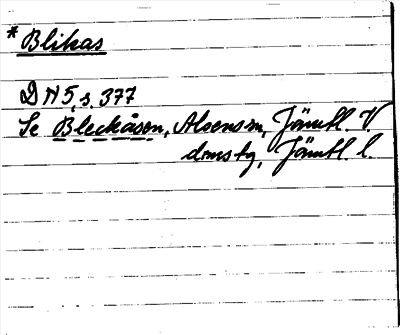 * Blikas
DN 5, s. 377
Se Bleckåsen, Alsens sn, Jämtl. V.
domstg, Jämtl. l.